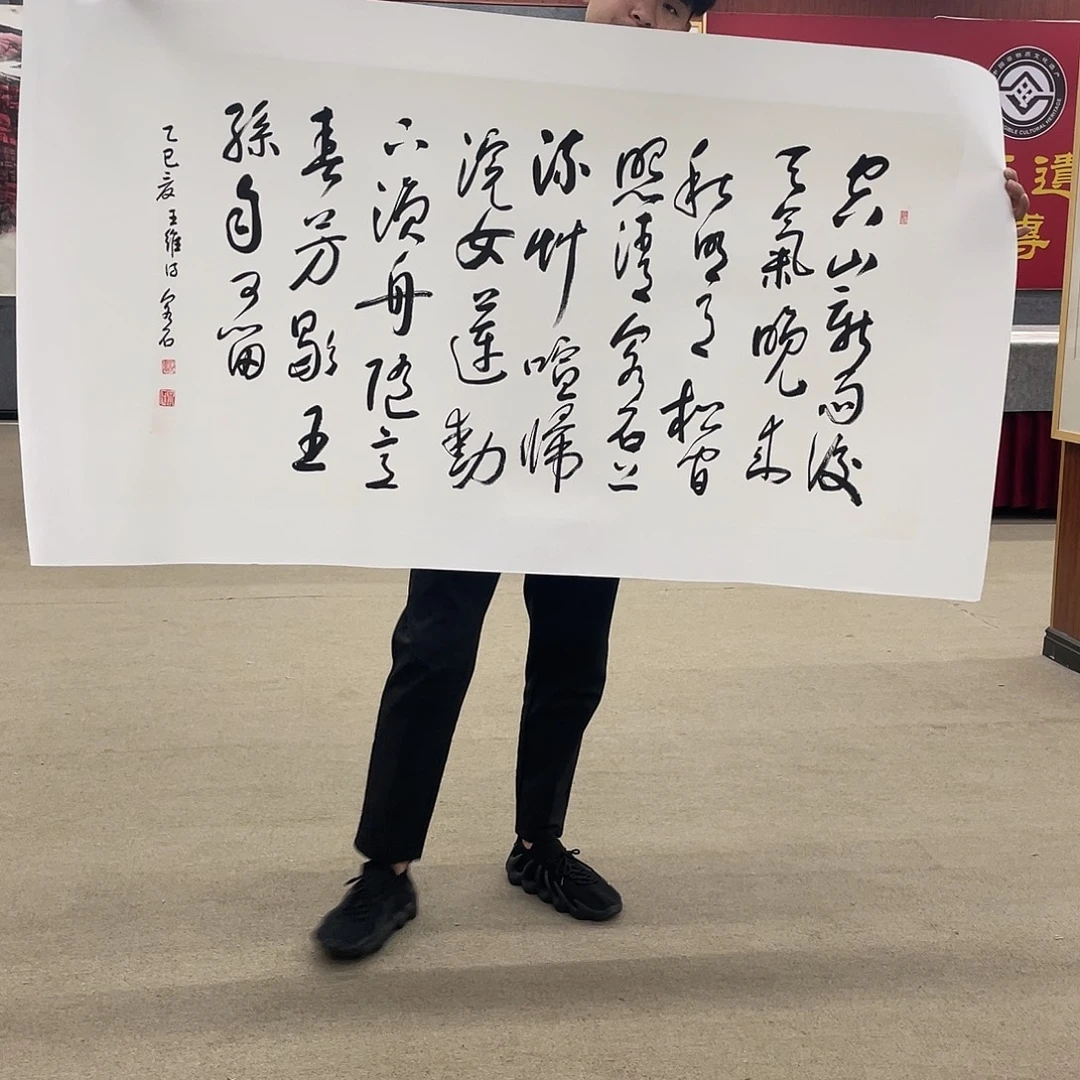 空山新雨後
天氣晚來
秋明月松間
照清泉石上
流竹喧歸
浣女蓮動
下漁舟隨意
春芳歇王
孫自可留
乙巳夏王維詩泉石
CULTURAL HERITAGE
遺